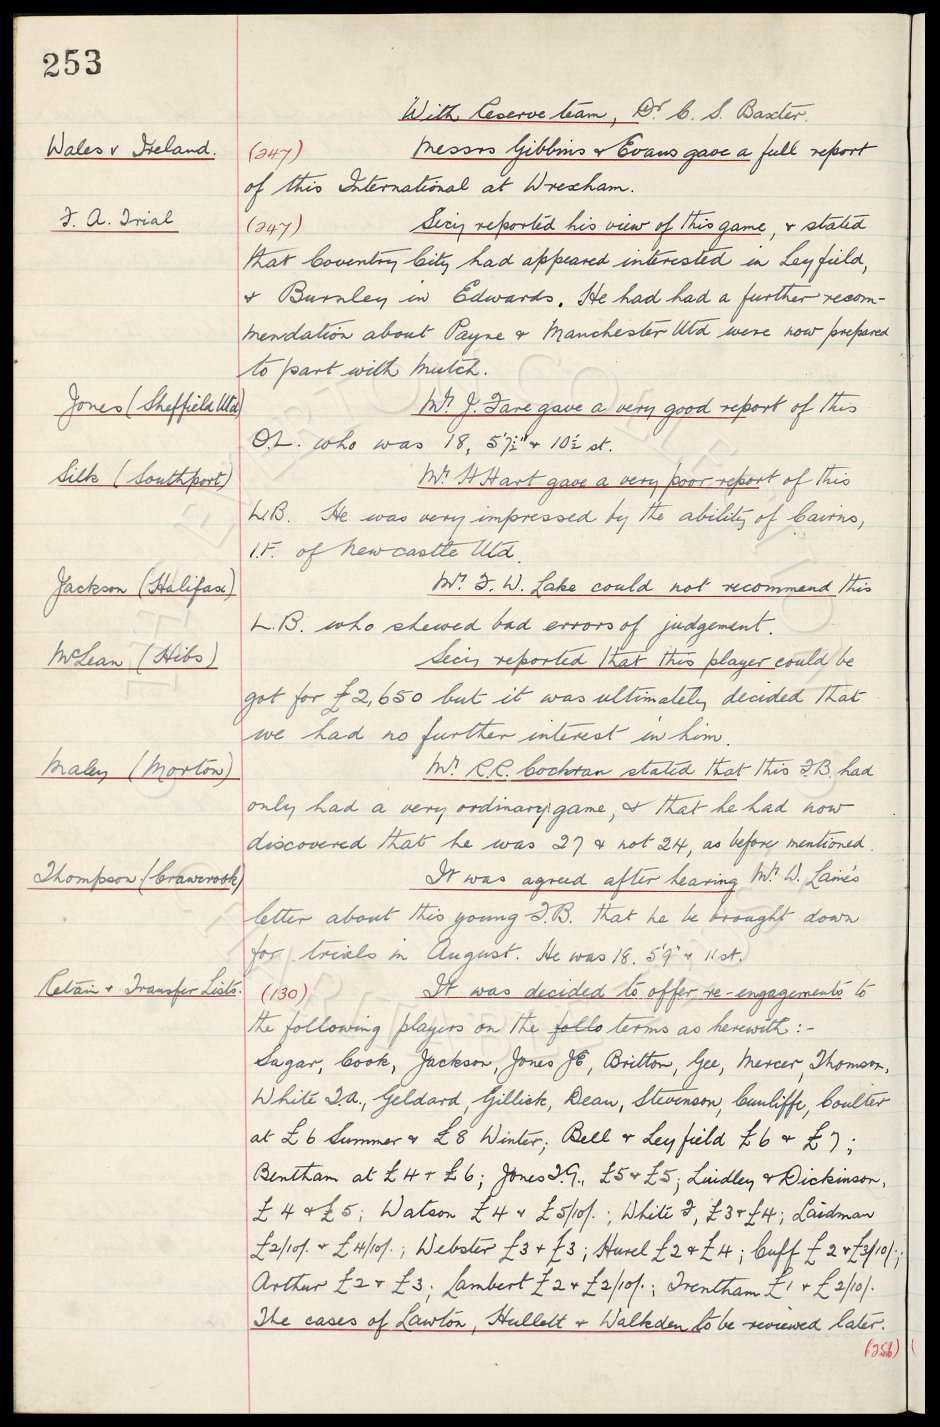 253
With Reserve team, Dr. C. S. Baxter.
Wales v Ireland. (247) Messrs Gibbins & Evans gave a full report
of this International at Wrexham.
F. A. Trial (247) Secy reported his view of this game, & stated
that Coventry City had appeared interested in Leyfield,
& Burnley in Edwards. He had had a further recom-
mendation about Payne & Manchester Utd were now prepared
to part with Mutch.
Jones (Sheffield Utd) Mr. J. Fare gave a very good report of this
O.L. who was 18, 5'7½" & 10½ st.
Silk (Southport) Mr. H Hart gave a very poor report of this
L.B. He was very impressed by the ability of Cairns,
I.F. of Newcastle Utd.
Jackson (Halifax) Mr. F. W. Lake could not recommend this
L.B. who shewed bad errors of judgement.
McLean (Hibs) Secy reported that this player could be
got for £2,650 but it was ultimately decided that
we had no further interest in him.
Maley (Morton) Mr. R.R. Cochran stated that this F.B. had
only had a very ordinary game, & that he had now
discovered that he was 27 & not 24, as before mentioned.
Thompson (Crawcrook) It was agreed after hearing Mr. W. Laine's
letter about this young F.B. that he be brought down
for trials in August. He was 18. 5'9" & 11 st.
Retain & Transfer Lists. (130) It was decided to offer re-engagements to
the following players on the follo terms as herewith :-
Sagar, Cook, Jackson, Jones JE, Britton, Gee, Mercer, Thomson,
White T.A., Geldard, Gillick, Dean, Stevenson, Cunliffe, Coulter
at £6 Summer & £8 Winter; Bell & Leyfield £6 & £7;
Bentham at £4 & £6; Jones T.G., £5 & £5; Lindley & Dickinson,
£4 & £5; Watson £4 & £5/10/-; White F, £3 & £4; Laidman
£2/10/- & £4/10/-; Webster £3 & £3; Hurel £2 & £4; Cuff £2 & £3/10/-;
Arthur £2 & £3; Lambert £2 & £2/10/-; Trentham £1 & £2/10/-.
The cases of Lawton, Hullett & Walkden to be reviewed later.
(256)